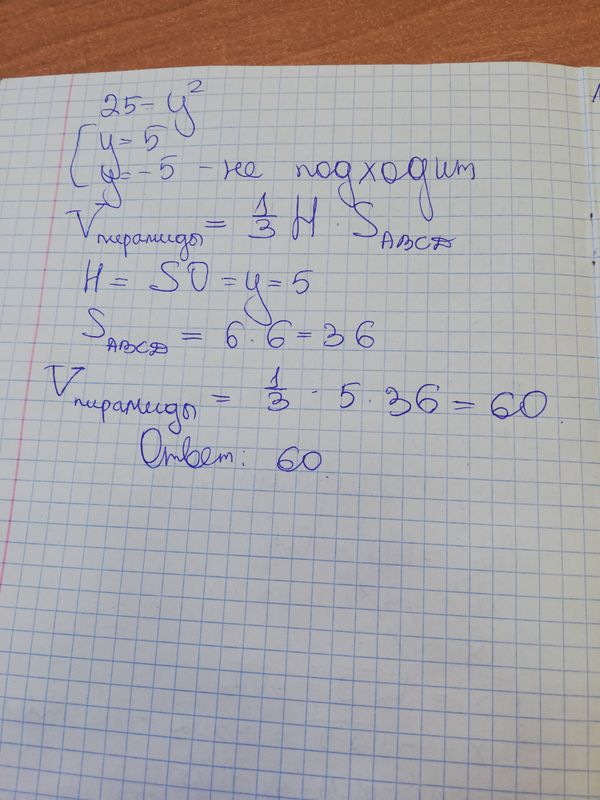 25 = y²
[ y = 5
y = -5 - не подходит
Vпирамиды = 1/3 H · S_ABCD
H = SO = y = 5
S_ABCD = 6 · 6 = 36
Vпирамиды = 1/3 · 5 · 36 = 60
Ответ: 60